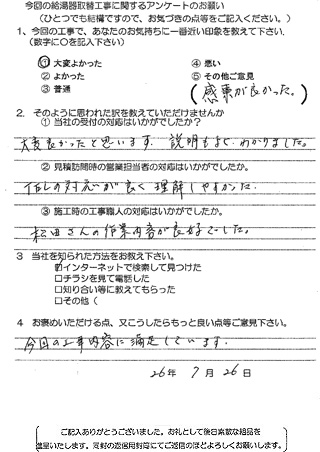 今回の給湯器取替工事に関するアンケートのお願い
（ひとつでも結構ですので、お気づきの点等をご記入ください。）
1、今回の工事で、あなたのお気持ちに一番近い印象を教えて下さい.
（数字に○を記入下さい）
① 大変よかった ④ 悪い
② よかった ⑤ その他ご意見
③ 普通 （感東が良かった。）
2. そのように思われた訳を教えていただけませんか
① 当社の受付の対応はいかがでしたか？
大変良かったと思います. 説明もよく わかりました。
② 見積訪問時の営業担当者の対応はいかがでしたか。
の対応が良く 理解しやすかった.
③ 施工時の工事職人の対応はいかがでしたか。
松田さんの作業内容が良好でした。
3 当社を知られた方法をお教え下さい。
☑インターネットで検索して見つけた
□チラシを見て電話した
□知り合い等に教えてもらった
□その他（
4 お褒めいただける点、又こうしたらもっと良い点等ご意見下さい。
今回の工事内容に満足しています.
26年 7月 26日
ご記入ありがとうございました。お礼として後日素敵な粗品を
進呈いたします。同封の返信用封筒にてご返信のほどよろしくお願いします。